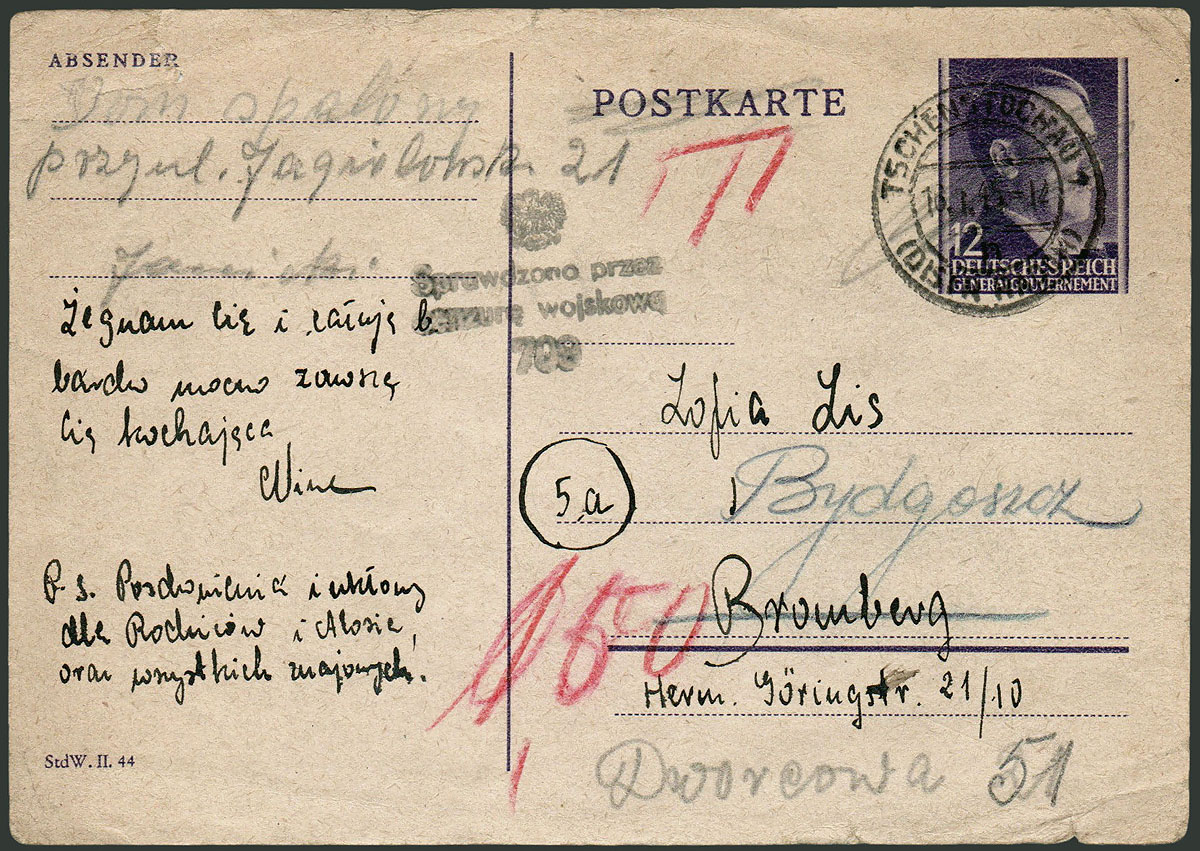 ABSENDER
Dom spalony
przy ul. Jagielońsk 21
POSTKARTE
TSCHENSTOCHAU 1
12
DEUTSCHES REICH
GENERALGOUVERNEMENT
Sprawdzono przez
cenzurę wojskową
709
Żegnam Cię i całuję b.
bardzo mocno zawszę
Cię kochająca
P. S. Pozdrowienia i ukłony
dla Rodziców i Alosia,
oraz wszystkich znajomych.
StdW. II. 44
Zofia Lis
5a
Bydgoszcz
Bromberg
Herm. Göringstr. 21/10
Dworcowa 51